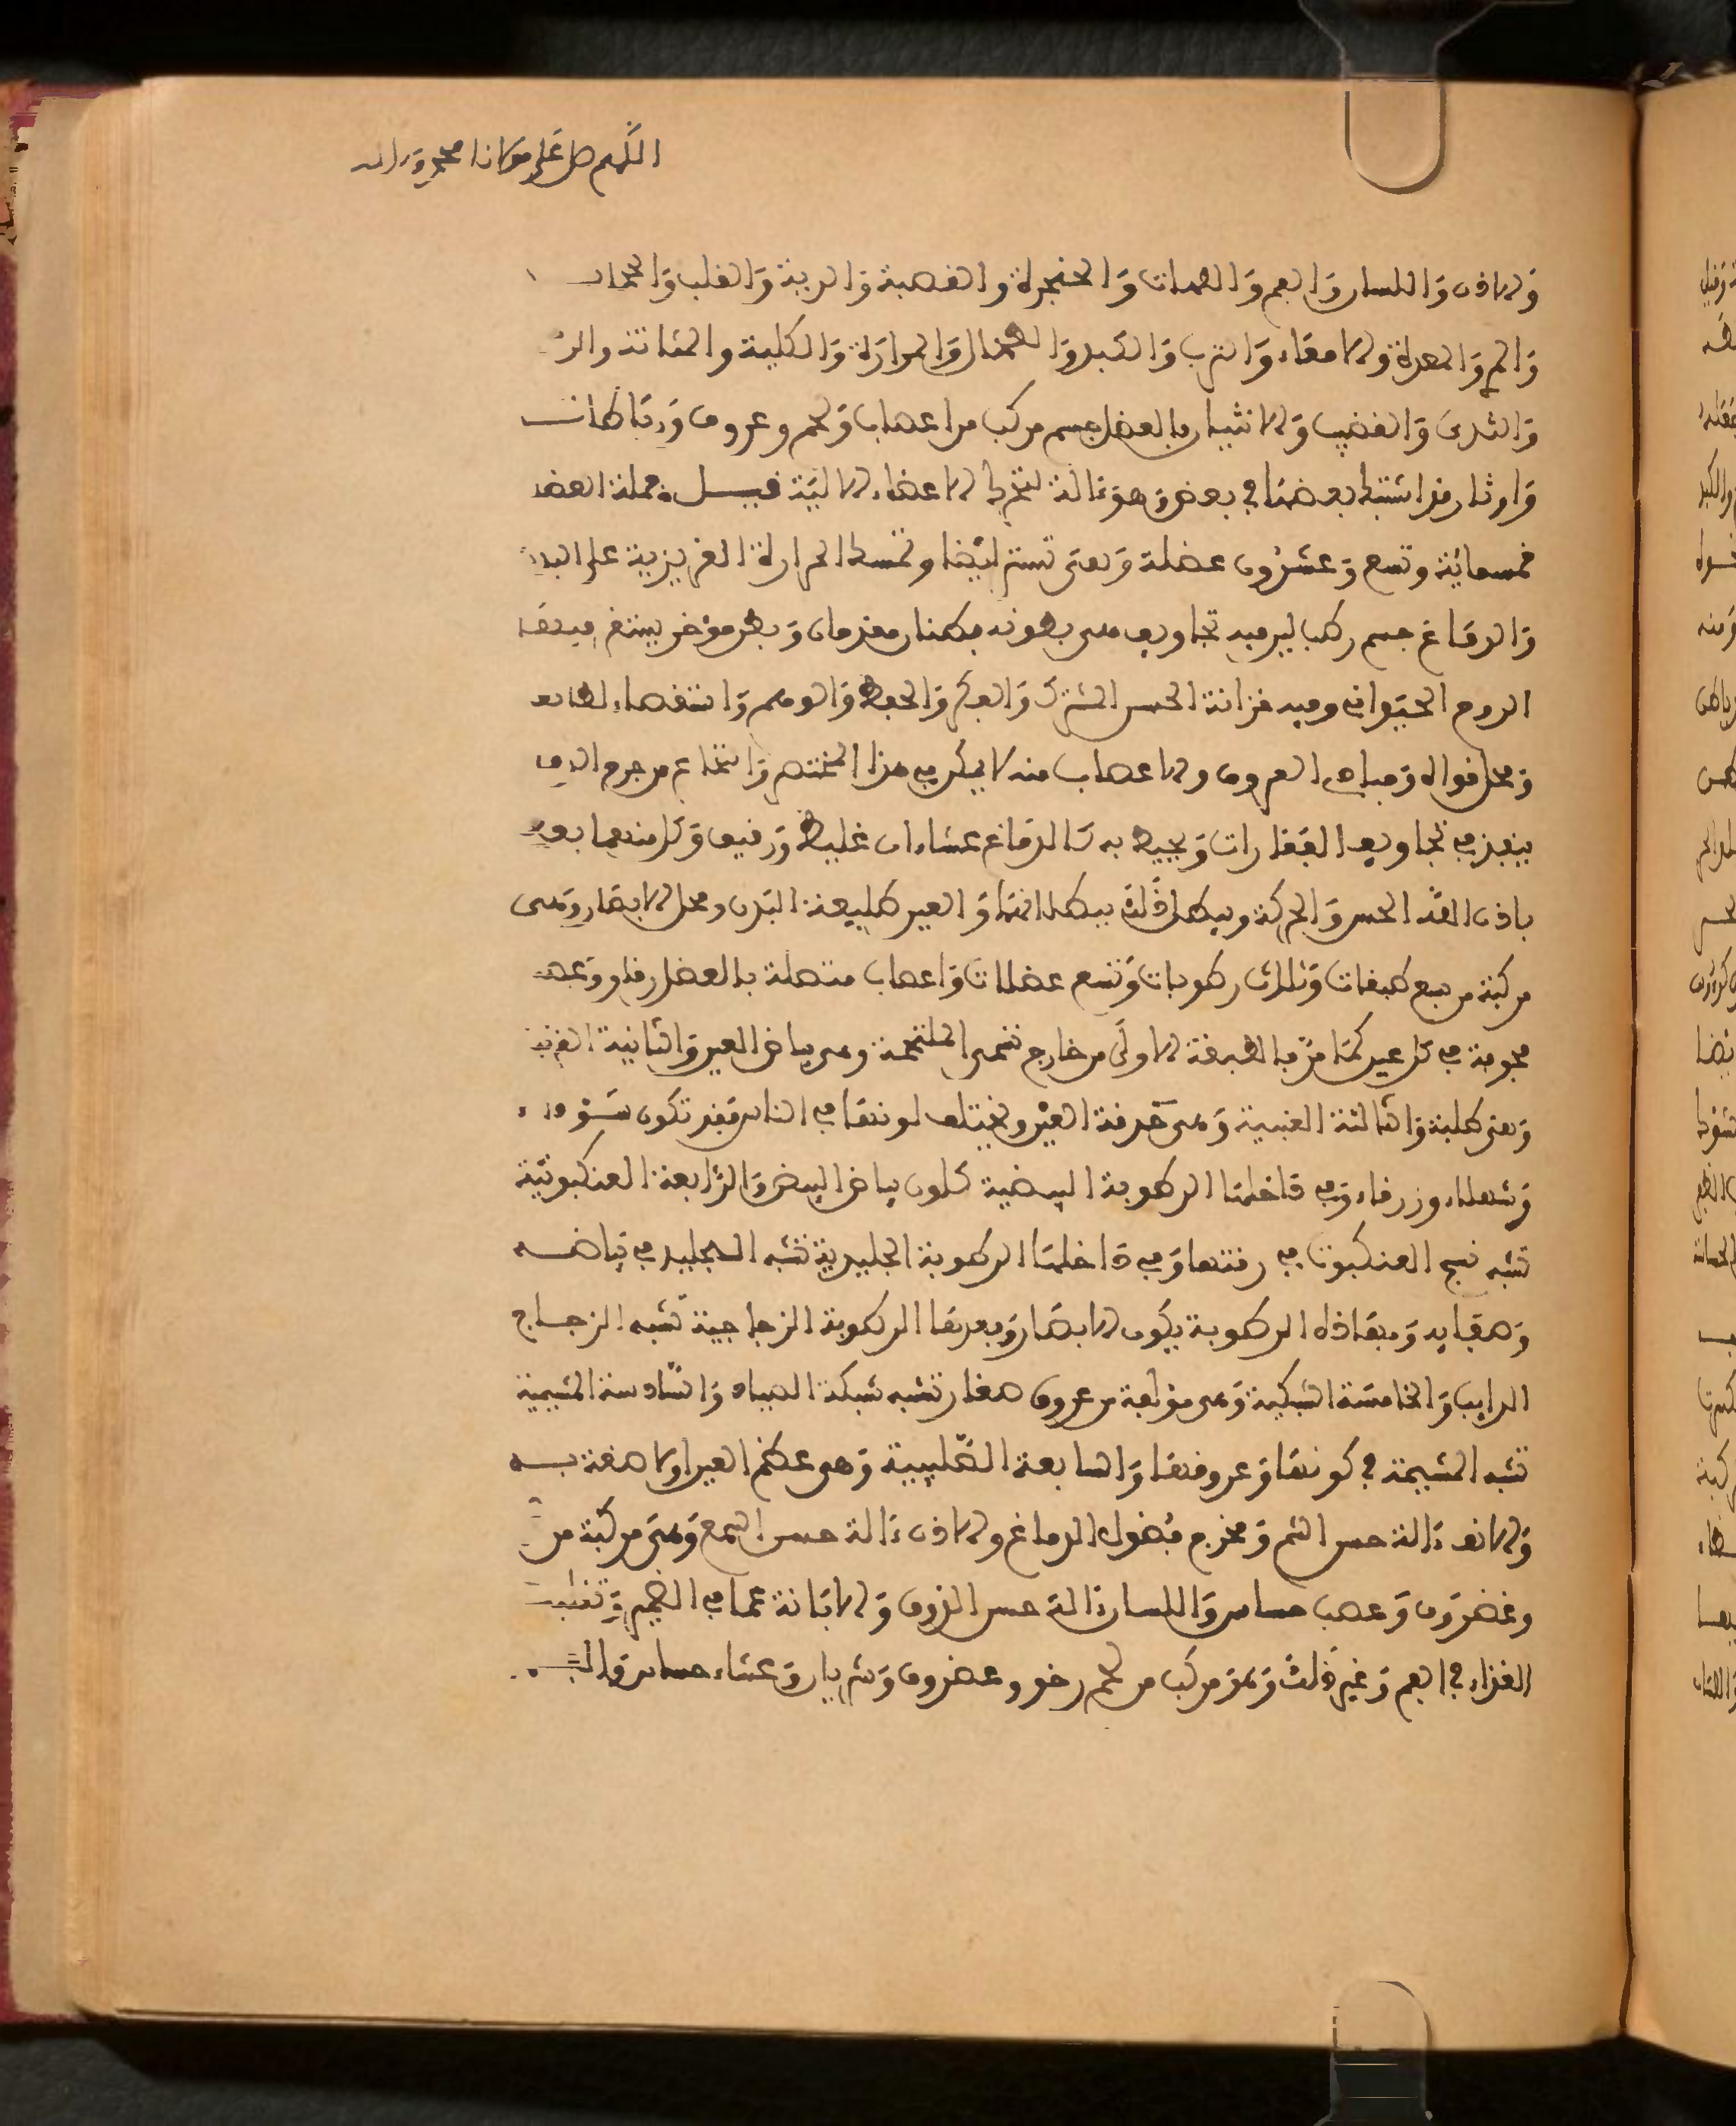 اللهم صل على مولانا محمد وءاله
والاذن واللسان والفم واللهات والحنجرة والقصبة والرية والقلب والحجاب
والمر والمعدة والامعاء والثرب والكبد والطحال والمرارة والكلية والمثانة والر
والثدي والقضيب والانثيان فالعضل جسم مركب من اعصاب ولحم وعروق ورباطات
واوتار قد اشتبك بعضها في بعض وهو ءالة لتحريك الاعضاء الالية قيل جملة العضل
خمسمائة وتسع وعشرون عضلة وهي تستر ايضا وتمسك الحرارة الغريزية على البدن
والدماغ جسم رطب لين فيه تجاويف هي بطونه بطنان مقدمان وبطن مؤخر يستقر فيها
الروح الحيواني وفيه خزانة الحس المشترك والفكر والحفظ والوهم واستقصاء
ومحل قواه ومبادي العروق والاعصاب منه لا يمكن في هذا المختصر والنخاع من جرم الدماغ
ينفذ في تجاويف الفقارات ويحيط به كالدماغ غشاءان غليظ ورقيق وكل منهما يفيد
باذن الله الحس والحركة ويبطل ذلك ببطلانها والعين طليعة البدن ومحل الابصار وهي
مركبة من سبع طبقات وثلاث رطوبات وتسع عضلات واعصاب متصلة بالعضل وعصبة
مجوفة في كل عين كما مر فالطبقة الاولى من خارج تسمى الملتحمة وهي بياض العين والثانية القرنية
وهي صلبة والثالثة العنبية وهي حدقة العين ويختلف لونها في الناس فقد تكون سوداء
وشهلاء وزرقاء وفي داخلها الرطوبة البيضية كلون بياض البيض والرابعة العنكبوتية
تشبه نسج العنكبوت في رقتها وفي داخلها الرطوبة الجليدية تشبه الجليد في بياضه
وصفايه وبهاذه الرطوبة يكون الابصار وبعدها الرطوبة الزجاجية تشبه الزجاج
الذايب والخامسة الشبكية وهي مؤلفة من عروق صغار تشبه شبكة الصياد والسادسة المشيمية
تشبه المشيمة في كونها وعروقها والسابعة الصلبية وهو عظم العين اولا صقة به
والانف ءالة حس الشم ومخرج فضول الدماغ والاذن ءالة حس السمع وهي مركبة من
وغضروف وعصب حساس واللسان ءالة حس الذوق والابانة عما في الضمير وتقليب
الغذاء في الفم وغير ذلك وهو مركب من لحم رخو وغضروف وشريان وغشاء حساس